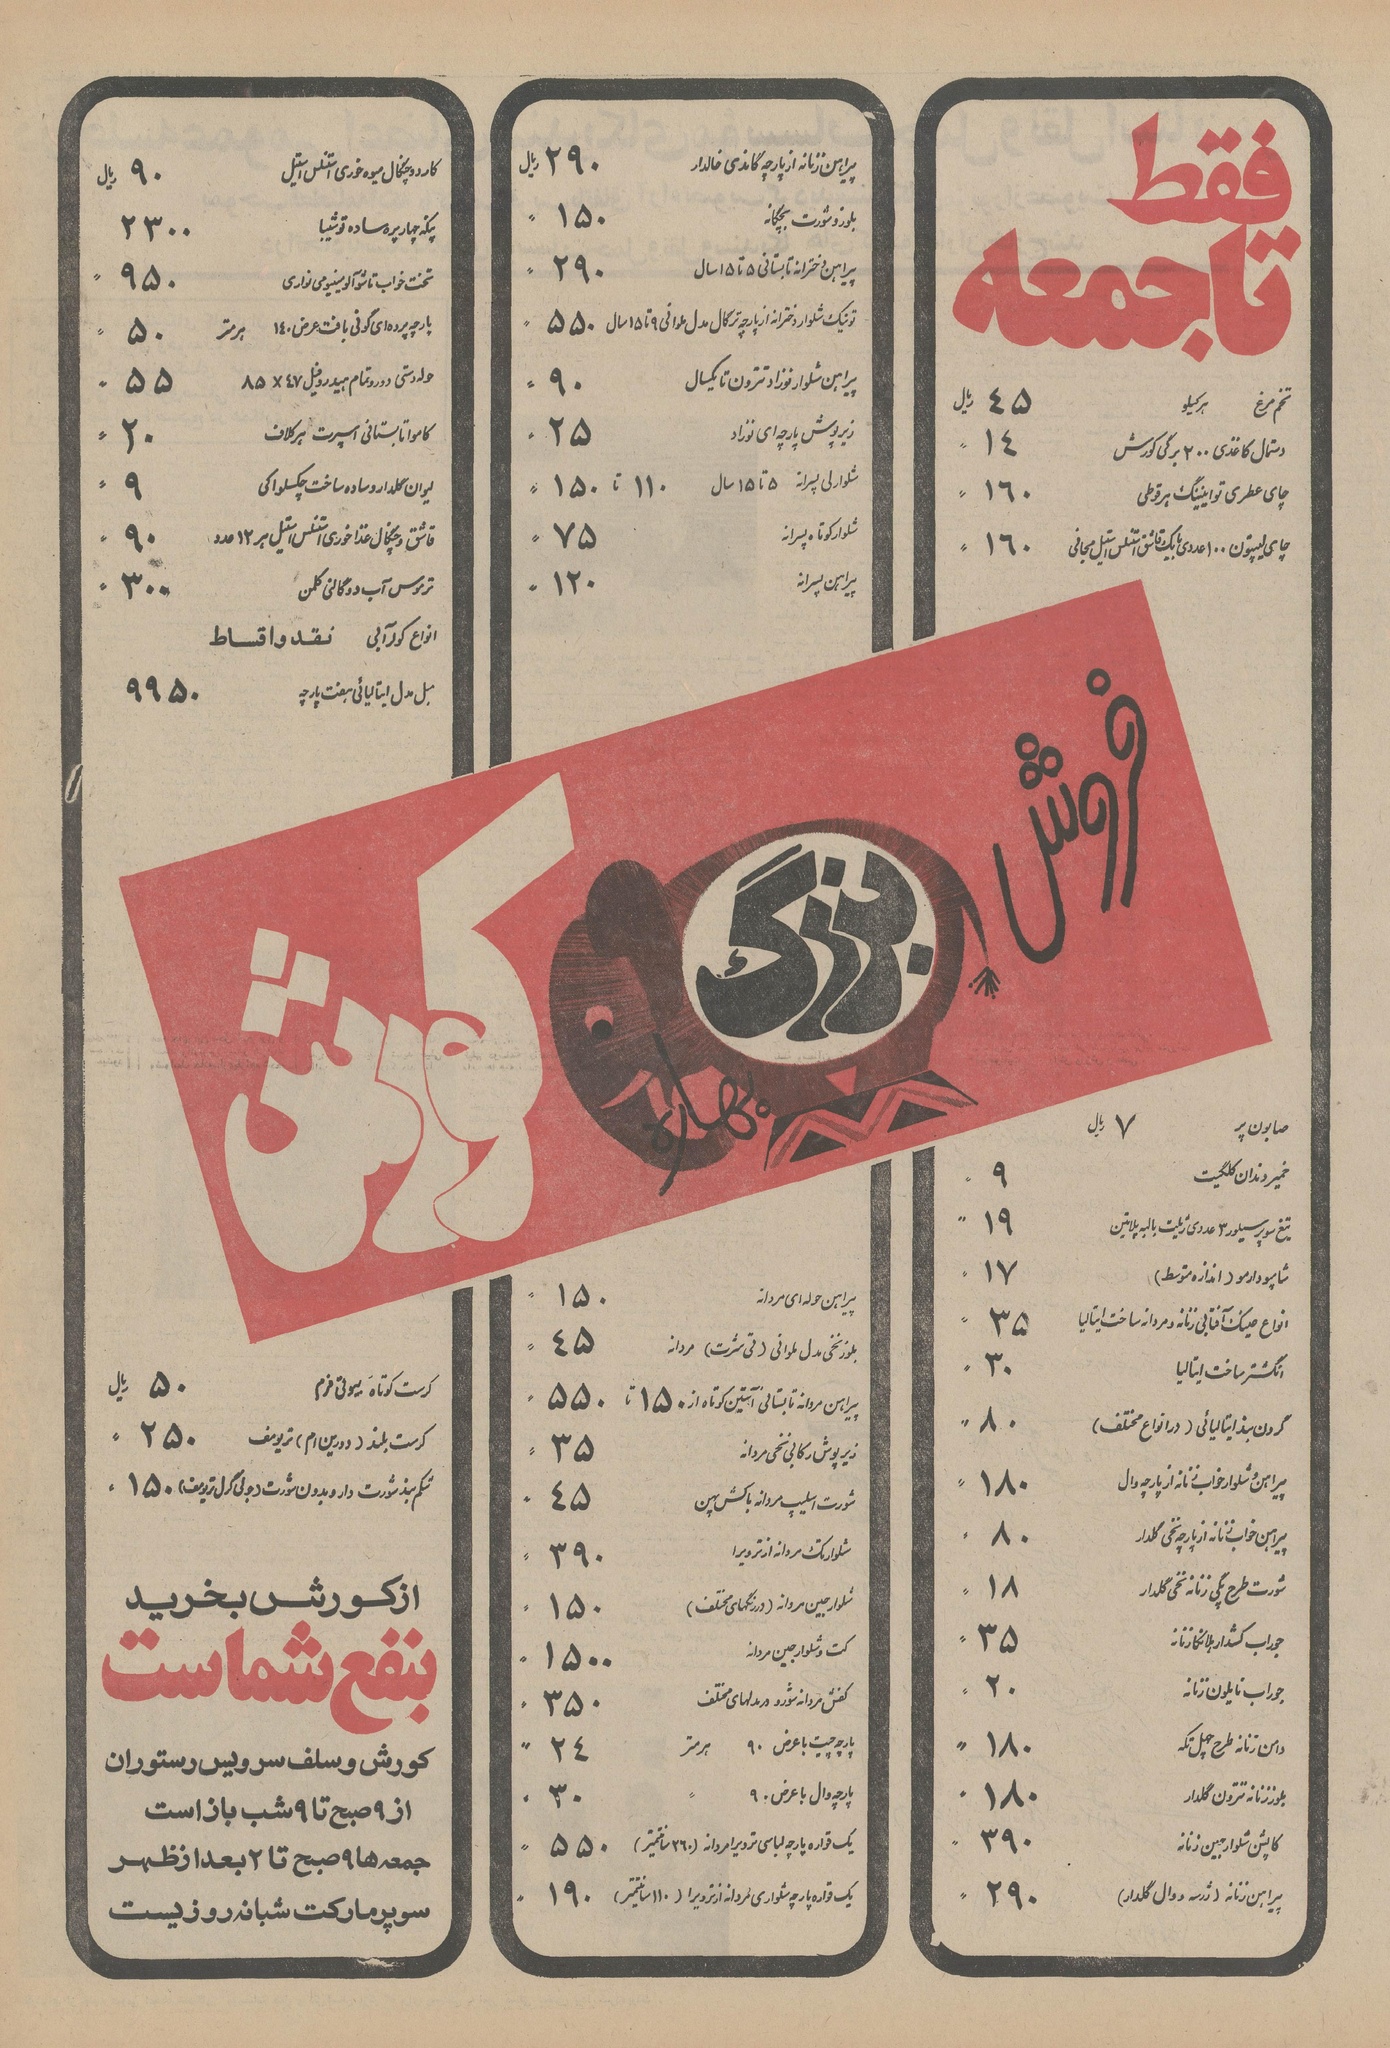 فقط
تا جمعه
تخم مرغ هرکیلو ۴۵ ریال
دستمال کاغذی ۲۰۰ برگی کورش ۱۴ "
چای عطری توایینگ هرقوطی ۱۶۰ "
چای لیپتون ۱۰۰ عددی با یک قاشق استنلس استیل مجانی ۱۶۰ "
صابون پر ۷ ریال
خمیر دندان کلگیت ۹ "
تیغ سوپر سیلور ۳ عددی ژیلت با لبه پلاتین ۱۹ "
شامپو دارمو (اندازه متوسط) ۱۷ "
انواع عینک آفتابی زنانه و مردانه ساخت ایتالیا ۳۵ "
انگشتر ساخت ایتالیا ۳۰ "
گردن بند ایتالیائی (در انواع مختلف) ۸۰ "
پیراهن و شلوار خواب زنانه از پارچه وال ۱۸۰ "
پیراهن خواب زنانه از پارچه نخی گلدار ۸۰ "
شورت طرح پگی زنانه نخی گلدار ۱۸ "
جوراب کشدار بلانکا زنانه ۳۵ "
جوراب نایلون زنانه ۲۰ "
دامن زنانه طرح چهل تکه ۱۸۰ "
بلوز زنانه تترون گلدار ۱۸۰ "
کاپشن شلوار جین زنانه ۳۹۰ "
پیراهن زنانه (ژرسه و وال گلدار) ۲۹۰ "
پیراهن زنانه از پارچه گاندی خالدار ۲۹۰ ریال
بلوز و شورت بچگانه ۱۵۰ "
پیراهن دخترانه تابستانی ۵ تا ۱۵ سال ۲۹۰ "
تونیک شلوار دخترانه از پارچه ترگال مدل ملوانی ۹ تا ۱۵ سال ۵۵۰ "
پیراهن شلوار نوزاد تترون تا یکسال ۹۰ "
زیرپوش پارچه ای نوزاد ۲۵ "
شلوار لی پسرانه ۵ تا ۱۵ سال ۱۱۰ تا ۱۵۰ "
شلوار کوتاه پسرانه ۷۵ "
پیراهن پسرانه ۱۲۰ "
فروش
بزرگ
بهاره
کورش
پیراهن حوله ای مردانه ۱۵۰ "
بلوز نخی مدل ملوانی (تی شرت) مردانه ۴۵ "
پیراهن مردانه تابستانی آستین کوتاه از ۱۵۰ تا ۵۵۰ "
زیرپوش رکابی نخی مردانه ۳۵ "
شورت اسلیپ مردانه با کش پهن ۴۵ "
شلوار تک مردانه از ترویرا ۳۹۰ "
شلوار جین مردانه (در رنگهای مختلف) ۱۵۰ "
کت و شلوار جین مردانه ۱۵۰۰ "
کفش مردانه شورو در مدلهای مختلف ۳۵۰ "
پارچه چیت با عرض ۹۰ هرمتر ۲۴ "
پارچه وال با عرض ۹۰ " ۳۰ "
یک قواره پارچه لباسی ترویرا مردانه (۲۶۰ سانتیمتر) ۵۵۰ "
یک قواره پارچه شلواری مردانه از ترویرا (۱۱۰ سانتیمتر) ۱۹۰ "
کارد و چنگال میوه خوری استنلس استیل ۹۰ ریال
پنکه چهار پره ساده توشیبا ۲۳۰۰
تخت خواب تاشو آلومینیومی نواری ۹۵۰ "
پارچه پرده ای گونی بافت عرض ۱۴۰ هرمتر ۵۰ "
حوله دستی دورو تمام هیدروفیل ۴۷ × ۸۵ ۵۵ "
کاموا تابستانی اسپرت هرکلاف ۲۰ "
لیوان گلدار و ساده ساخت چکسلواکی ۹ "
قاشق و چنگال غذاخوری استنلس استیل هر ۱۲ عدد ۹۰ "
ترموس آب دو گالنی کلمن ۳۰۰ "
انواع کولر آبی نقد و اقساط
مبل مدل ایتالیائی هفت پارچه ۹۹۵۰
کرست کوتاه بیوتی فرم ۵۰ ریال
کرست بلند (دورین ام) تریومف ۲۵۰ "
شکم بند شورت دار و بدون شورت (جولی گرل تریومف) ۱۵۰ "
از کورش بخرید
بنفع شماست
کورش و سلف سرویس رستوران
از ۹ صبح تا ۹ شب باز است
جمعه ها ۹ صبح تا ۲ بعد از ظهر
سوپر مارکت شبانه روزیست